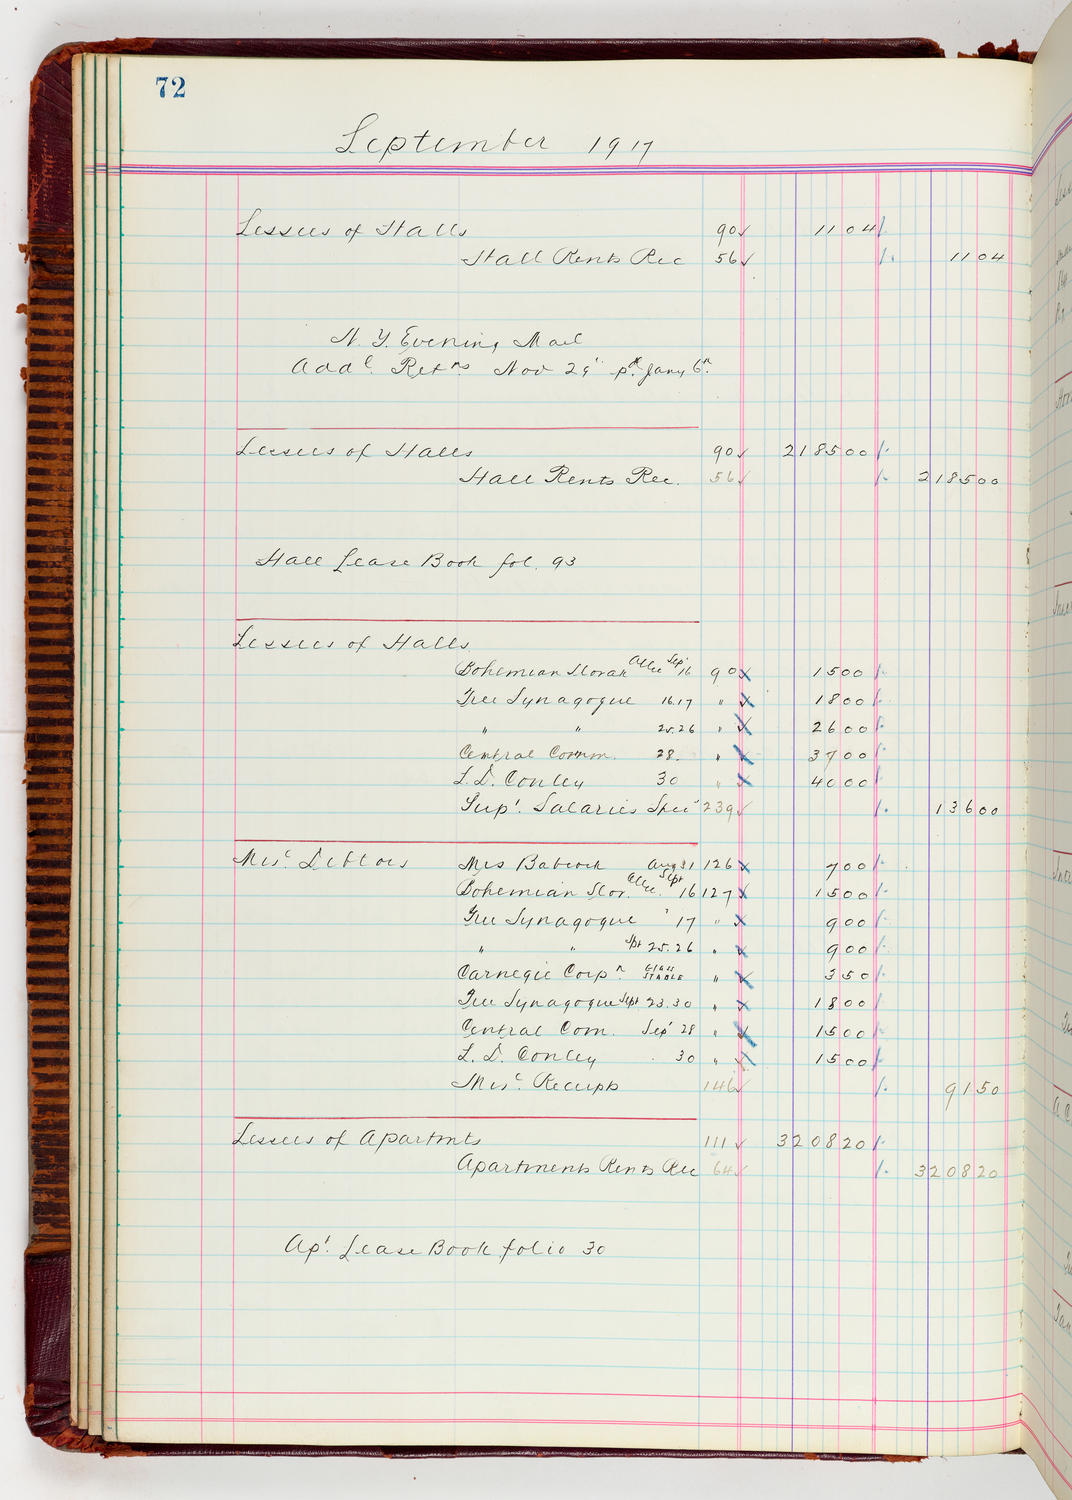 72
September 1917
Lessees of Halls 90 1104
Hall Rents Rec 56 1104
N. Y. Evening Mail
Addl. Retns Nov 29 Jany 6
Lessees of Halls 90 218500
Hall Rents Rec. 56 218500
Hall Lease Book fol. 93
Lessees of Halls
Bohemian Slovak Sep' 16 90 1500
Free Synagogue 16.17 " 1800
" " 25.26 " 2600
Central Comm. 28. " 3700
L. D. Conley 30 " 4000
Supt. Salaries Spec' 239 13600
Misc Debtors Mrs Babcock Aug 31 126 700
Bohemian Slov. Sept 16 127 1500
Free Synagogue " 17 " 900
" " Spt 25.26 " 900
Carnegie Corpn. STABLE " 350
Free Synagogue Sept 23.30 " 1800
Central Com. Sep' 28 " 1500
L. D. Conley 30 " 1500
Misc. Receipts 146 9150
Lessees of Apartmts 111 320820
Apartments Rents Rec 64 320820
Apt. Lease Book folio 30